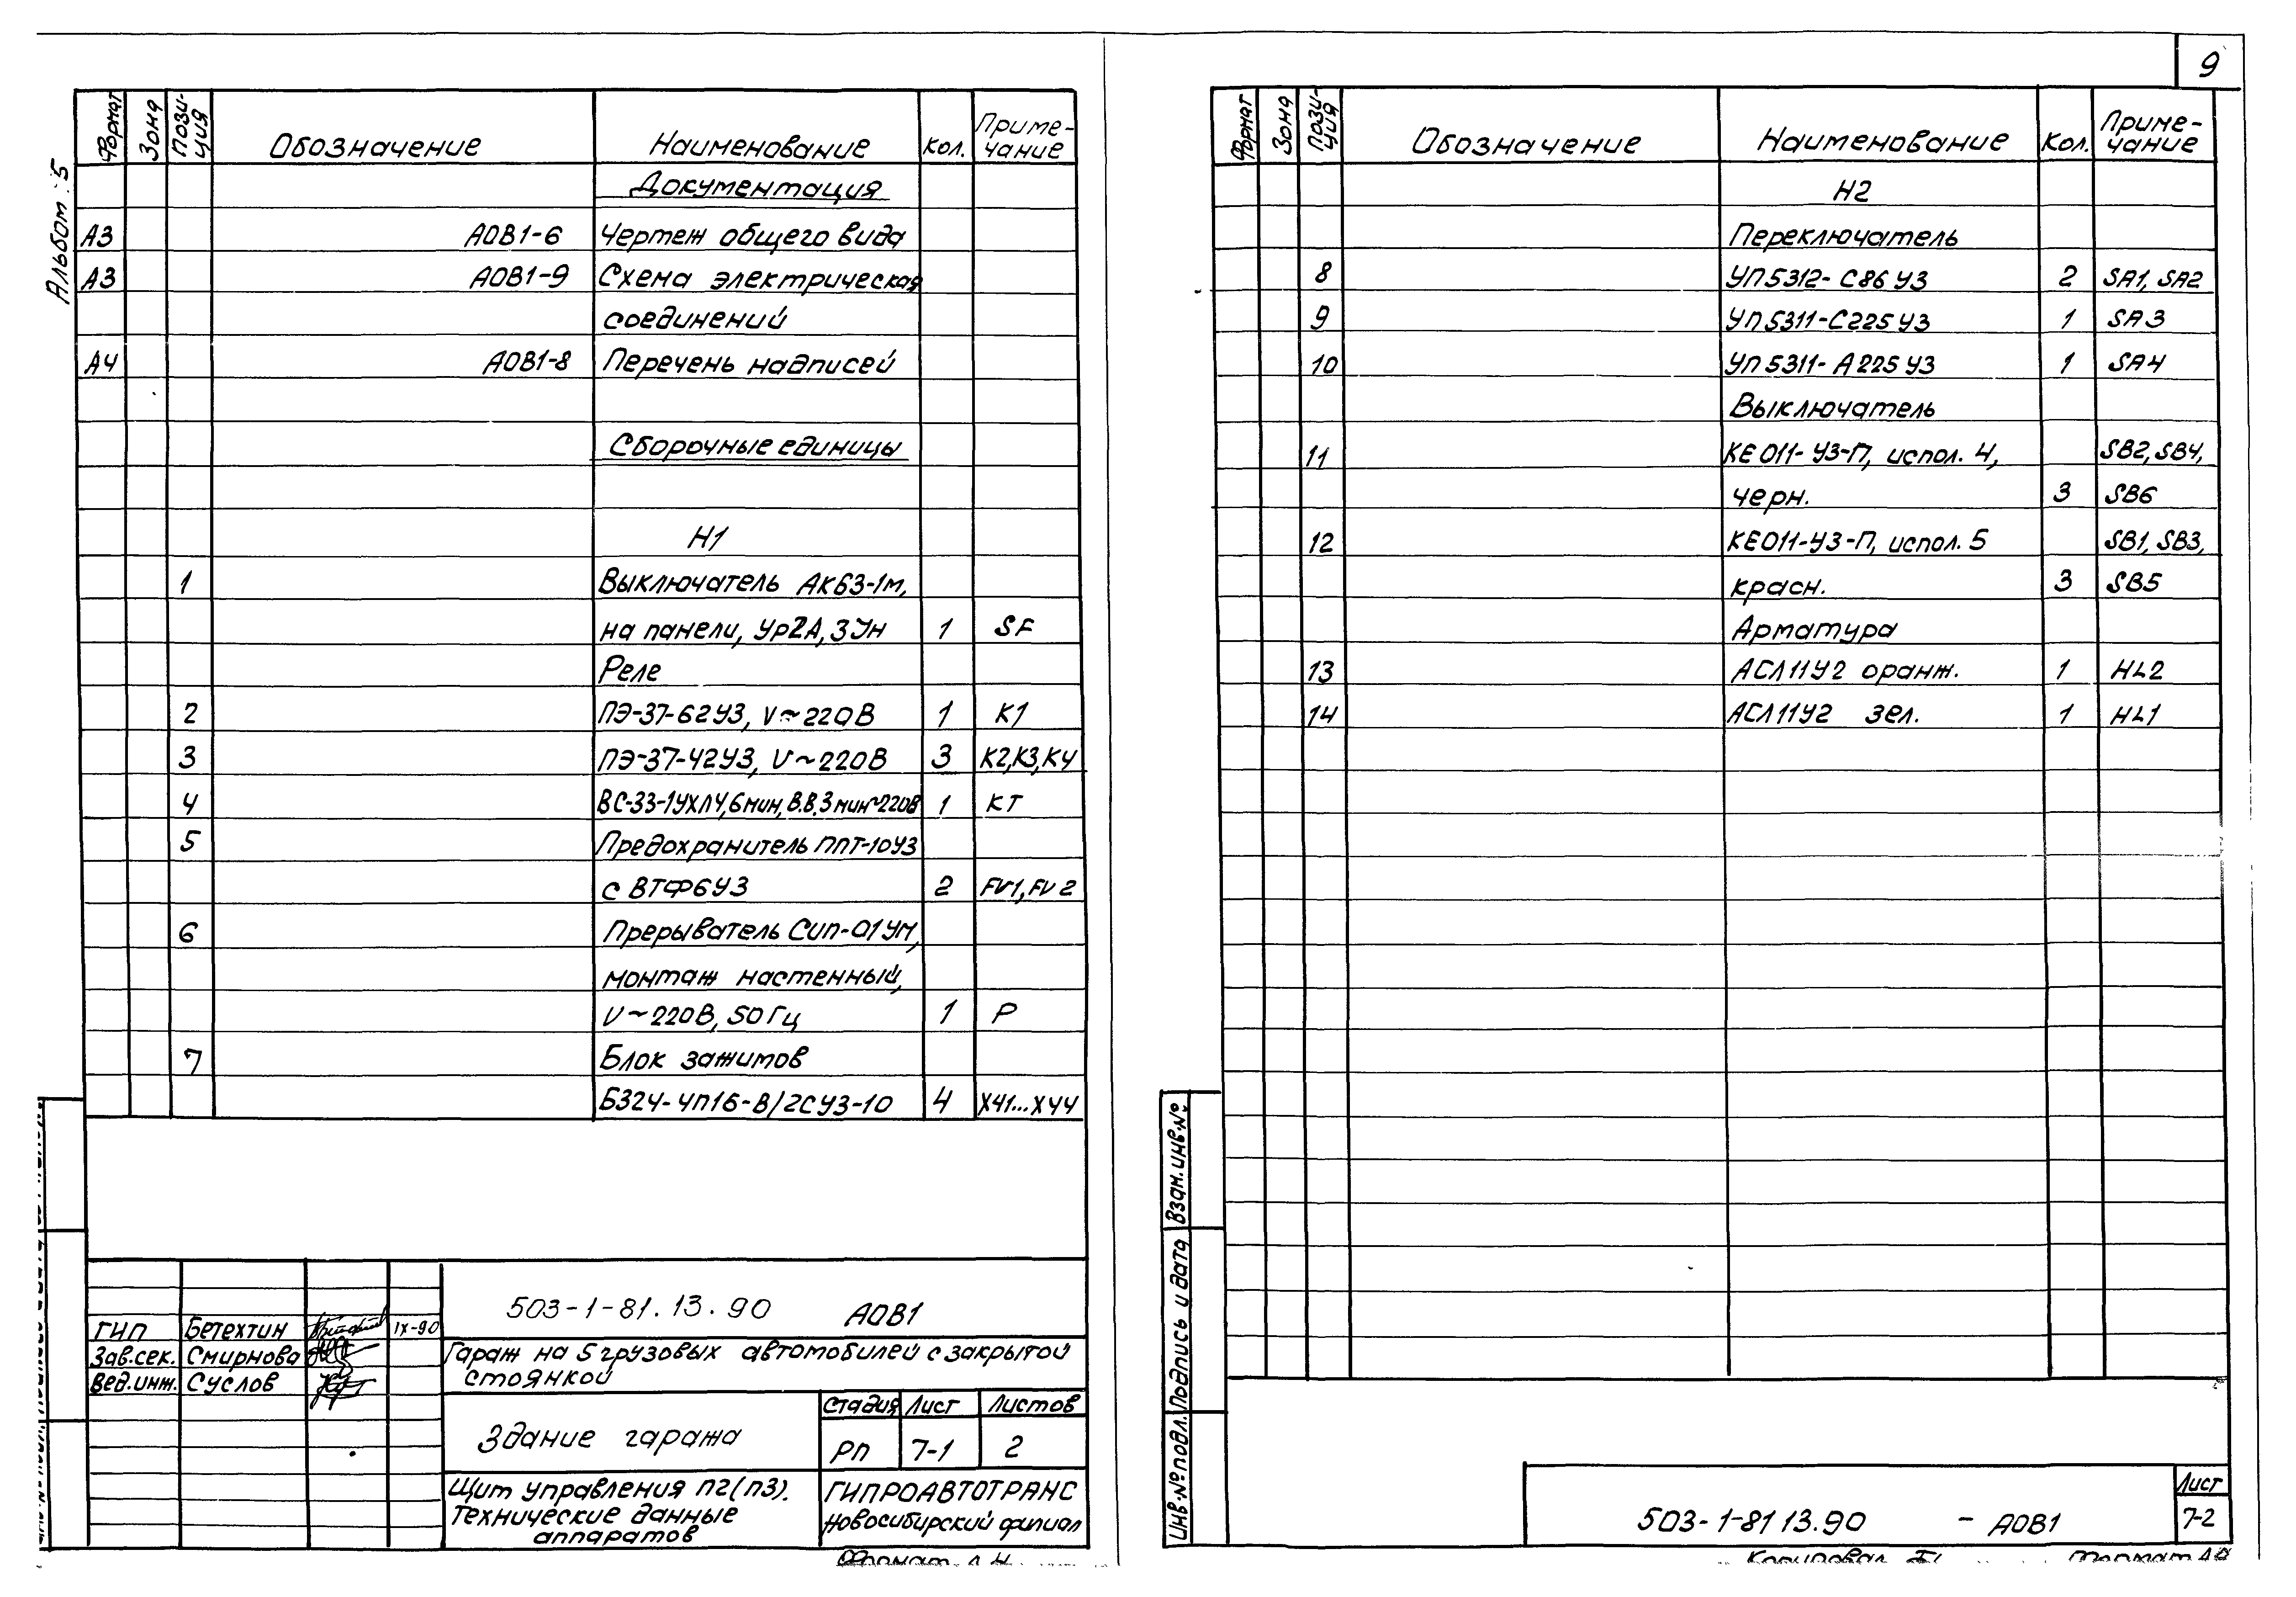 9
Альбом 5
Формат Зона Пози-ция Обозначение Наименование Кол. Приме-чание
Документация
А3 АОВ1-6 Чертеж общего вида
А3 АОВ1-9 Схема электрическая
соединений
А4 АОВ1-8 Перечень надписей
Сборочные единицы
Н1
1 Выключатель АК63-1м,
на панели, Ур2А, 3Ун 1 SF
Реле
2 ПЭ-37-62У3, V~220В 1 К1
3 ПЭ-37-42У3, V~220В 3 К2,К3,К4
4 ВС-33-1УХЛ4,6мин, В.В.3мин~220В 1 КТ
5 Предохранитель ППТ-10У3
с ВТФ6У3 2 FV1, FV2
6 Прерыватель Сип-01УМ,
монтаж настенный,
V~220В, 50Гц 1 Р
7 Блок зажимов
БЗ24-4П16-В/2СУ3-10 4 Х41...Х44
503-1-81.13.90 АОВ1
ГИП Бетехтин IX-90
Зав.сек. Смирнова
Вед.инж. Суслов
Гараж на 5 грузовых автомобилей с закрытой
стоянкой
Здание гаража
Стадия Лист Листов
РП 7-1 2
Щит управления П2(П3).
Технические данные
аппаратов
ГИПРОАВТОТРАНС
Новосибирский филиал
Формат А4
Формат Зона Пози-ция Обозначение Наименование Кол. Приме-чание
Н2
Переключатель
8 УП5312-С86У3 2 SA1, SA2
9 УП5311-С225У3 1 SA3
10 УП5311-А225У3 1 SA4
Выключатель
11 КЕ011-У3-П, испол. 4, SB2, SB4,
черн. 3 SB6
12 КЕ011-У3-П, испол. 5 SB1, SB3,
красн. 3 SB5
Арматура
13 АСЛ11У2 оранж. 1 HL2
14 АСЛ11У2 зел. 1 HL1
Взам.инв.№
Подпись и дата
Инв.№подл.
503-1-81 13.90 - АОВ1
Лист
7-2
Копировал
Формат